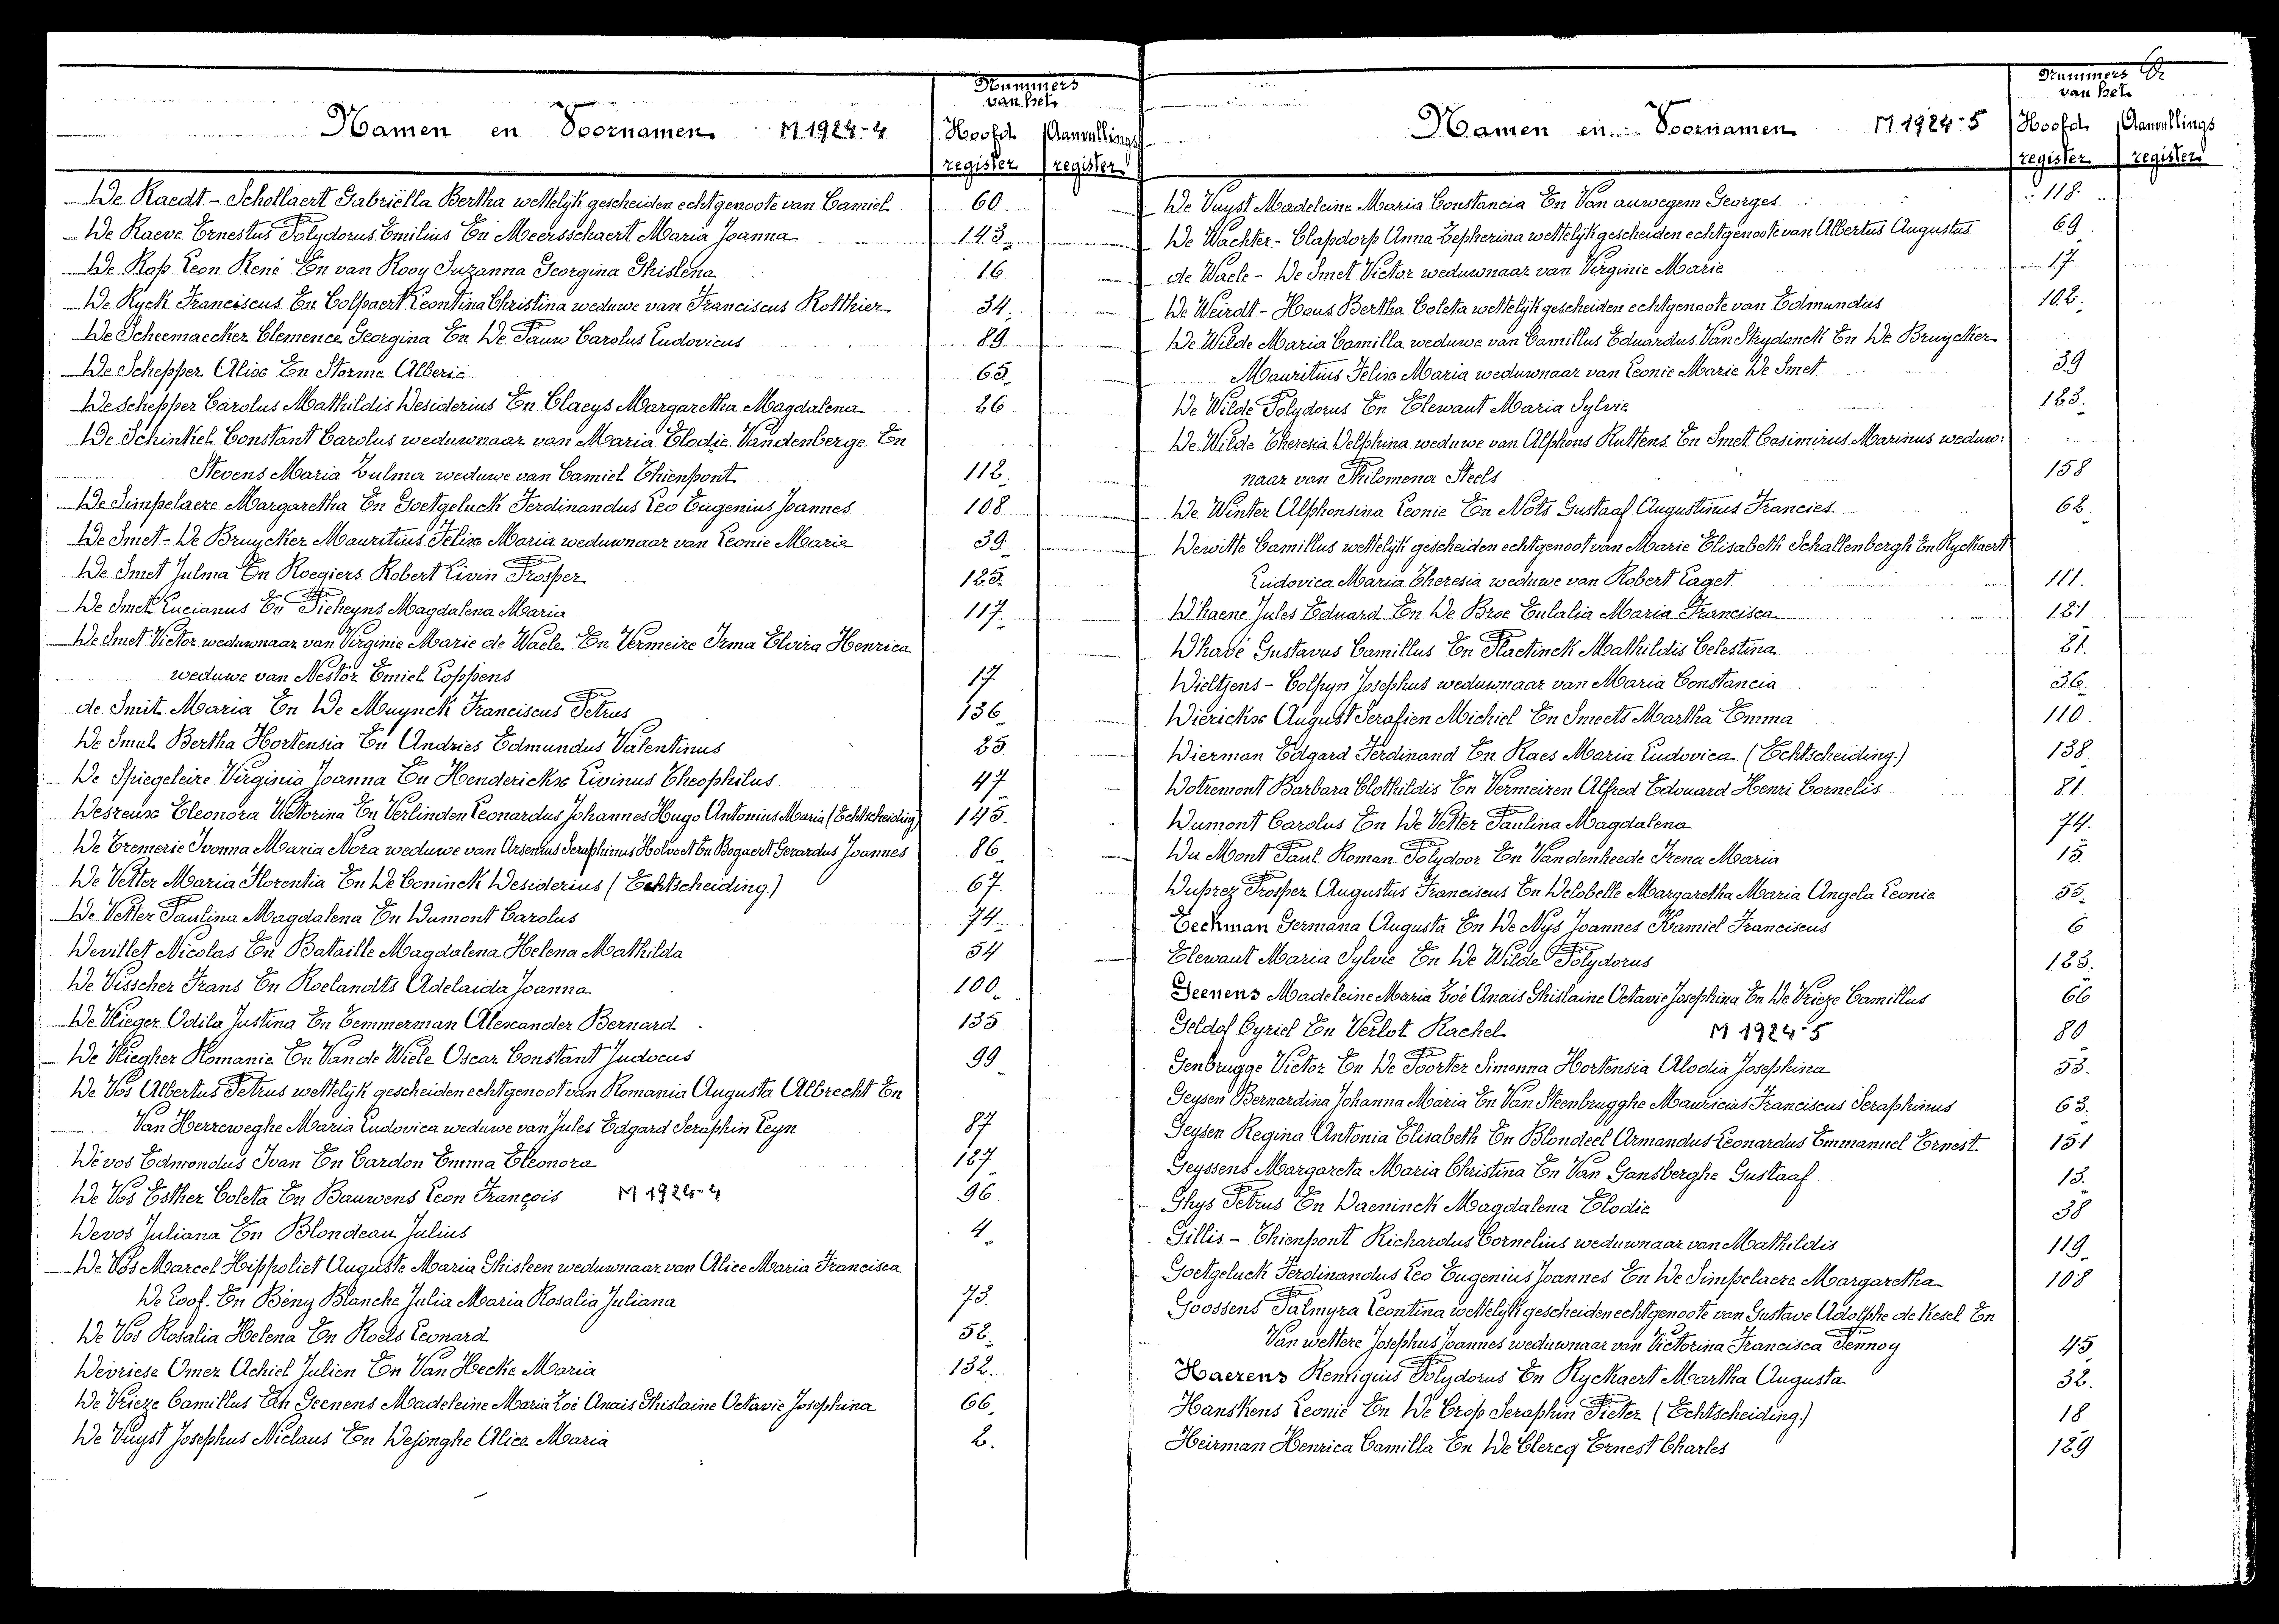 Namen en Voornamen M 1924-4
Nummers van het
Hoofd register
Aanvullings register
De Raedt - Schollaert Gabriëlla Bertha wettelijk gescheiden echtgenoote van Camiel 60
De Raeve Ernestus Polydorus Emilius En Meersschaert Maria Joanna 143
De Rop Leon René En van Rooy Suzanna Georgina Ghislena 16
De Ryck Franciscus En Colpaert Leontina Christina weduwe van Franciscus Rotthier 34
De Scheemaecker Clemence Georgina En De Pauw Carolus Ludovicus 89
De Schepper Alice En Storme Alberic 65
De Schepper Carolus Mathildis Desiderius En Claeys Margaretha Magdalena 26
De Schinkel Constant Carolus weduwnaar van Maria Elodie Vandenberge En
Stevens Maria Zulma weduwe van Camiel Thienpont 112
De Simpelaere Margaretha En Goetgeluck Ferdinandus Leo Eugenius Joannes 108
De Smet - De Bruycker Mauritius Felix Maria weduwnaar van Leonie Maria 39
De Smet Julma En Roegiers Robert Livin Prosper 125
De Smet Lucianus En Picheyns Magdalena Maria 117
De Smet Victor weduwnaar van Virginie Marie de Waele En Vermeire Irma Elvira Henrica
weduwe van Nestor Emiel Coppens 17
de Smit Maria En De Muynck Franciscus Petrus 136
De Smul Bertha Hortensia En Andries Edmundus Valentinus 25
De Spiegeleire Virginia Joanna En Henderickx Livinus Theophilus 47
Desreux Eleonora Victorina En Verlinden Leonardus Johannes Hugo Antonius Maria (Echtscheiding) 145
De Tremerie Ivonna Maria Nora weduwe van Arsenius Seraphinus Holvoet En Bogaert Gerardus Joannes 86
De Vetter Maria Florentia En De Coninck Desiderius (Echtscheiding) 67
De Vetter Paulina Magdalena En Dumont Carolus 74
Devillet Nicolas En Bataille Magdalena Helena Mathilda 54
De Visscher Frans En Roelandts Adelaida Joanna 100
De Vlieger Odila Justina En Temmerman Alexander Bernard 135
De Vliegher Romanie En Van de Wiele Oscar Constant Judocus 99
De Vos Albertus Petrus wettelijk gescheiden echtgenoot van Romania Augusta Albrecht En
Van Herreweghe Maria Ludovica weduwe van Jules Edgard Seraphin Leyn 87
De vos Edmondus Ivan En Cardon Emma Eleonora 127
De Vos Esther Coleta En Bauwens Leon François M 1924-4 96
Devos Juliana En Blondeau Julius 4
De Vos Marcel Hippoliet Auguste Maria Ghisleen weduwnaar van Alice Maria Francisca
De Loof. En Bény Blanche Julia Maria Rosalia Juliana 73
De Vos Rosalia Helena En Roels Leonard 52
Devriese Omer Achiel Julien En Van Hecke Maria 132
De Vrieze Camillus En Geenens Madeleine Maria Zoé Anais Ghislaine Octavie Josephina 66
De Vuyst Josephus Niclaus En Dejonghe Alice Maria 2
Namen en Voornamen M 1924-5
Nummers van het
Hoofd register
Aanvullings register
De Vuyst Madeleine Maria Constancia En Van auwegem Georges 118
De Wachter - Clapdorp Anna Zepherina wettelijk gescheiden echtgenoote van Albertus Augustus 69
de Waele - De Smet Victor weduwnaar van Virginie Marie 17
De Weirdt - Hous Bertha Coleta wettelijk gescheiden echtgenoote van Edmundus 102
De Wilde Maria Camilla weduwe van Camillus Eduardus Van Strydonck En De Bruycker
Mauritius Felix Maria weduwnaar van Leonie Marie De Smet 39
De Wilde Polydorus En Elewaut Maria Sylvie 123
De Wilde Theresia Delphina weduwe van Alphons Ruttens En Smet Casimirus Marinus weduw:
naar van Philomena Steels 158
De Winter Alphonsina Leonie En Nots Gustaaf Augustinus Francies 62
Dewitte Camillus wettelijk gescheiden echtgenoot van Marie Elisabeth Schallenbergh En Ryckaert
Ludovica Maria Theresia weduwe van Robert Laget 111
D'haene Jules Eduard En De Broe Eulalia Maria Francisca 121
D'havé Gustavus Camillus En Plactinck Mathildis Celestina 21
Dieltjens - Colpyn Josephus weduwnaar van Maria Constancia 36
Dierickx August Serafien Michiel En Smeets Martha Emma 110
Dierman Edgard Ferdinand En Raes Maria Ludovica (Echtscheiding) 138
Dotremont Barbara Clothildis En Vermeiren Alfred Edouard Henri Cornelis 81
Dumont Carolus En De Vetter Paulina Magdalena 74
Du Mont Paul Roman Polydoor En Vandenheede Irena Maria 15
Duprez Prosper Augustus Franciscus En Delobelle Margaretha Maria Angela Leonie 55
Eeckman Germana Augusta En De Nys Joannes Kamiel Franciscus 6
Elewaut Maria Sylvie En De Wilde Polydorus 123
Geenens Madeleine Maria Zoé Anais Ghislaine Octavie Josephina En De Vrieze Camillus 66
Geldof Cyriel En Verlot Rachel M 1924-5 80
Genbrugge Victor En De Poorter Simonna Hortensia Alodia Josephina 53
Geysen Bernardina Johanna Maria En Van Steenbrugghe Mauricius Franciscus Seraphinus 63
Geysen Regina Antonia Elisabeth En Blondeel Armandus Leonardus Emmanuel Ernest 151
Geyssens Margareta Maria Christina En Van Gansberghe Gustaaf 13
Ghys Petrus En Daeninck Magdalena Elodie 38
Gillis - Thienpont Richardus Cornelius weduwnaar van Mathildis 119
Goetgeluck Ferdinandus Leo Eugenius Joannes En De Simpelaere Margaretha 108
Goossens Palmyra Leontina wettelijk gescheiden echtgenoote van Gustave Adolphe de Kesel En
Van wettere Josephus Joannes weduwnaar van Victorina Francisca Pennoy 45
Haerens Remigius Polydorus En Ryckaert Martha Augusta 32
Hanskens Leonie En De Crop Seraphin Pieter (Echtscheiding) 18
Heirman Henrica Camilla En De Clercq Ernest Charles 129